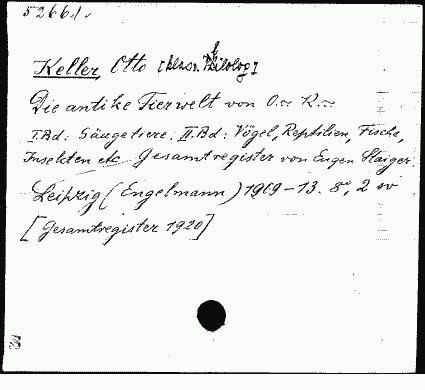 52661.
Keller, Otto [klass. Philolog]
Die antike Tierwelt von O. K.
I.Bd: Säugetiere. II.Bd: Vögel, Reptilien, Fische,
Insekten etc Gesamtregister von Eugen Staiger.
Leipzig (Engelmann) 1909-13. 8°, 2 
[Gesamtregister 1920]